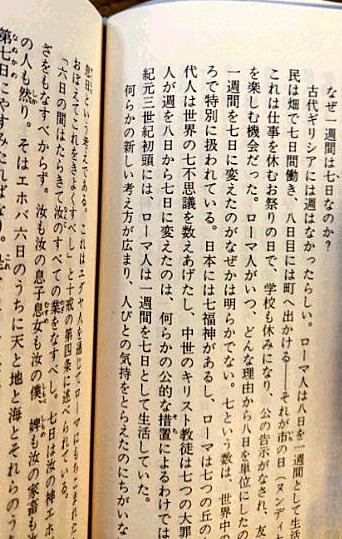 なぜ一週間は七日なのか?
古代ギリシアには週はなかったらしい。ローマ人は八日を一週間として生活
民は畑で七日間働き、八日目には町へ出かける——それが市の日(ヌンディナ
これは仕事を休むお祭りの日で、学校も休みになり、公の告示がなされ、友
を楽しむ機会だった。ローマ人がいつ、どんな理由から八日を単位にしたの
一週間を七日に変えたのがなぜかは明らかでない。七という数は、世界中の
ろで特別に扱われている。日本には七福神があるし、ローマは七つの丘の
代人は世界の七不思議を数えあげたし、中世のキリスト教徒は七つの大罪
人が週を八日から七日に変えたのは、何らかの公的な措置によるわけでは
紀元三世紀初頭には、ローマ人は一週間を七日として生活していた。
何らかの新しい考え方が広まり、人びとの気持をとらえたのにちがいな
息日という考えである。これはユダヤ人を通じてローマにもちこまれた
おぼえてこれをきよくすべし」と十戒の第四条に述べられている。
「六日の間はたらきて汝のすべての業をなすべし。七日は汝の神エホ
ざをもなすべからず。汝も汝の息子息女も汝の僕、婢も汝の家畜も汝
の人も然り。そはエホバ六日のうちに天と地と海とそれらのうち
第七日にやすみたればなり。